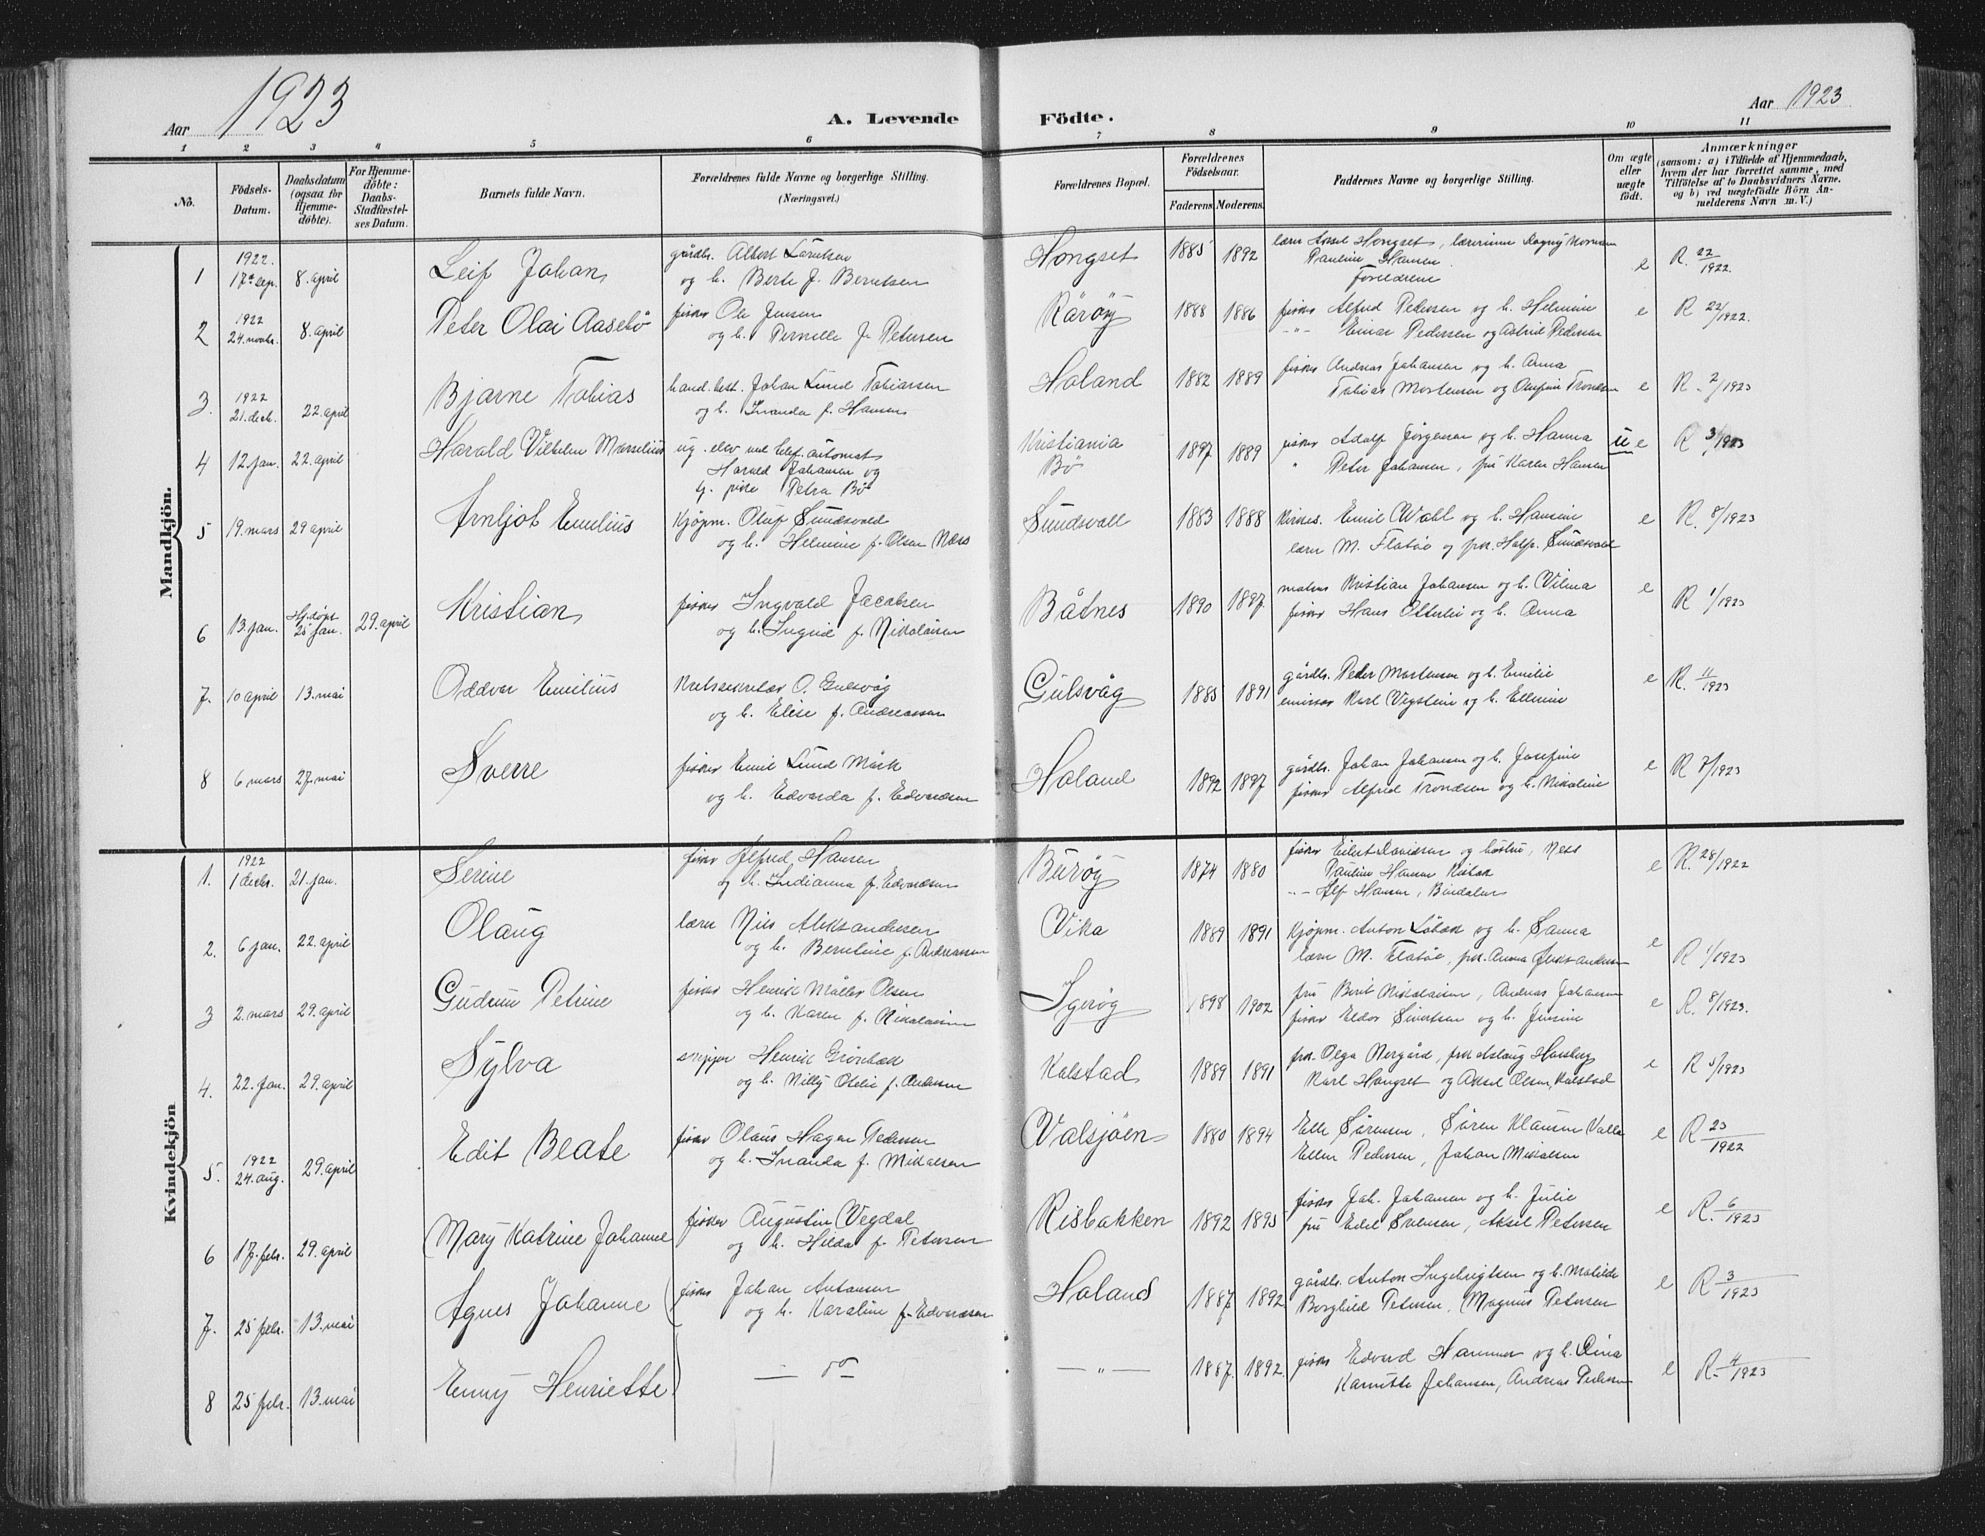 Aar 1923
A. Levende
Fødte.
Aar 1923
1 2 3 4 5 6 7 8 9 10 11
No.
Födsels-
Datum.
Daabsdatum
(ogsaa for
Hjemme-
døbte).
For Hjemme-
døbte:
Daabs-
Stadfæstel-
ses Datum.
Barnets fulde Navn.
Forældrenes fulde Navne og borgerlige Stilling.
(Næringsvei.)
Forældrenes Bopæl.
Forældrenes
Födselsaar.
Faderens. Moderens.
Faddernes Navne og borgerlige Stilling.
Om ægte
eller
uægte
født.
Anmærkninger
(saasom: a) i Tilfælde af Hjemmedaab,
hvem der har forrettet samme, med
Tilføielse af to Daabsvidners Navne.
og b) ved uægtefödte Börn An-
melderens Navn m. V.)
Mandkjön.
1
1922
17de sep.
8. april
Leif Johan
gårdbr. Albert Lorntsen
og h. Berte f. Berntsen
Hongset
1885 1892
lærer Aksel Hongset, lærerinne Dagny
Pauline Hansen
Foreldrene
e
R. 22/1922.
2
1922
24. novbr.
8. april
Peter Olai Aasebø
fisker Ole Jensen
og h. Pernille f. Petersen
Rårøy
1888 1886
fisker Alfred Pedersen og h. Helmine
-"- Einar Pedersen og Astrid Pedersen
e
R 22/1922.
3.
1922
21. decb.
22. april
Bjarne Tobias
hand.best. Johan Lund Tobiassen
og h. Inanda f. Hansen
Holand
1882 1889
fisker Andreas Johansen og h. Anna
Tobias Mortensen og Olufine Trondsen
e
R. 2/1923
4
12. jan.
22. april
Harald Vilhelm Marselius
ug. elev ved telef. automat
Harald Johansen og
g. pike Petra Bö
Kristiania
Bö
1897 1889
fisker Adolf Jörgensen og h. Hanna
" Peter Johansen, fru Karen Hansen
u e
R 3/1923
5
19. mars
29 april
Arnljot Emilius
Kjöpm. Oluf Sundsvold
og h. Helmine f. Olsen Næss
Sundsvoll
1883 1888
Kirkes. Emil Wahl og h. Hansine
lærer M. Flatöe og frk. Halfr. Sundsvold
e
R. 8/1923
6
13. jan.
Hj.döpt
25 jan.
29. april
Kristian
fisker Ingvald Jacobsen
og h. Ingrid f. Nikolaisen
Båtnes
1890 1897
Kristian Johansen og h. Vilma
fisker Hans Ottulei og h. Anna
e
R 1/1923
7.
10 april
13. mai
Oddvar Emilius
Kretssekretær O. Gulsvåg
og h. Elise f. Andreassen
Gulsvåg
1885 1891
gårdbr. Peder Mortensen og h. Emilie
emissær Karl Vegstein og h. Elleriine
e
R. 11/1923
8
6 mars
27. mai
Sverre
fisker Emil Lund Mårk
og h. Edvarda f. Edvardsen
Holand
1892 1897
gårdbr. Johan Johansen og h. Josefine
fisker Alfred Trondsen og h. Nikoline
e
R 7/1923
Kvindekjön
1.
1922
1 decbr.
21. jan.
Serine
fisker Alfred Hansen
og h. Indianna f. Edvardsen
Buröy
1874 1880
fisker Eilert Davidsen og hustru, Ness
Pauline Hansen
-"- Alf Hansen, Bindalen
e
R. 28/1922
2.
6 jan.
22. april
Olaug
lærer Nils Aleksandersen
og h. Berntine f. Andreassen
Vika
1889 1891
Kjöpm. Anton Löbak og h. Sanna
lærer M. Flatöe, frk. Anna Aleksandersen
e
R 1/1923
3
2. mars
29. april
Gudrun Petrine
fisker Henrik Möller Olsen
og h. Karen f. Nikolaisen
Igeröy
1898 1902
fru Berit Nikolaisen, Andreas Johansen
fisker Eldor Sivertsen og h. Jensine
e
R. 8/1923.
4.
22. jan.
29. april
Sylva
skipper Henrik Grönbæk
og h. Nilly Otelie f. Andersen
Kalstad
1889 1891
frk. Olga Nergård, frk Aslaug Horsberg
Karl Hongset og Aksel Olsen, Kalstad
e
R 5/1923
5.
1922
24. aug.
29. april
Edit Beate
fisker Olaus Hagen Pedersen
og h. Inanda f. Mikalsen
Valsjöen
1880 1894
Elle Sörensen, Sören Klausen Valla
Ellen Pedersen, Johan Mikalsen
e
R 23/1922
6
17. febr.
29. april
Mary Katrine Johanne
fisker Augustin Vegdal
og h. Hilda f. Petersen
Risbakken
1892 1895
fisker Joh. Johansen og h. Julie
fru Edel Svensen, Aksel Petersen
e
R. 6/1923
7.
25 febr.
13. mai
Agnes Johanne
fisker Johan Antonsen
og h. Karoline f. Edvardsen
Holand
1887 1892
gårdbr. Anton Ingebrigtsen og h. Matilde
Borghild Petersen, Magnus Petersen
e
R 3/1923
8
25 febr.
13. mai
Enny Henriette
— do —
— " —
1887. 1892.
fisker Edvard Hammer og h. Dina
Karnitte Johansen, Andreas Pedersen
e
R. 4/1923